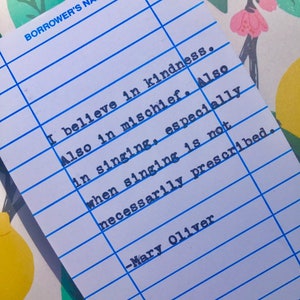 BORROWER'S NA
I believe in kindness.
Also in mischief. Also
in singing, especially
when singing is not
necessarily prescribed.
-Mary Oliver